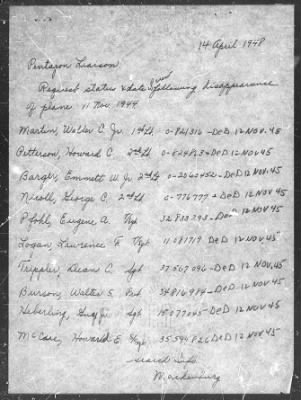 14 April 1948
Pentagon Liaison
Request status & date of following disappearance
of plane 11 Nov. 1944
Martin, Walter C Jr. 1st Lt 0-821316 - DED 12 NOV. 45
Petterson, Howard C 2nd Lt 0-824813 - DED 12 NOV. 45
Barger, Emmett W Jr 2nd Lt 0-2062462 - DED 12 NOV. 45
Nicoll, George C, 2nd Lt 0-776777 - DED 12 NOV 45
Pfohl, Eugene A. 32 833 293 - DED 12 NOV 45
Logan, Lawrence F. 11 081 719 DED 12 NOV. 45
Dean C Sgt 37 567 096 - DED 12 NOV. 45
Burson, Walter S 34 816 984 - DED 12 NOV 45
Heberling, Guy Jr Sgt 15 077 045 DED 12 NOV 45
McCase, Howard E 35 594 826 DED 12 NOV 45
search info